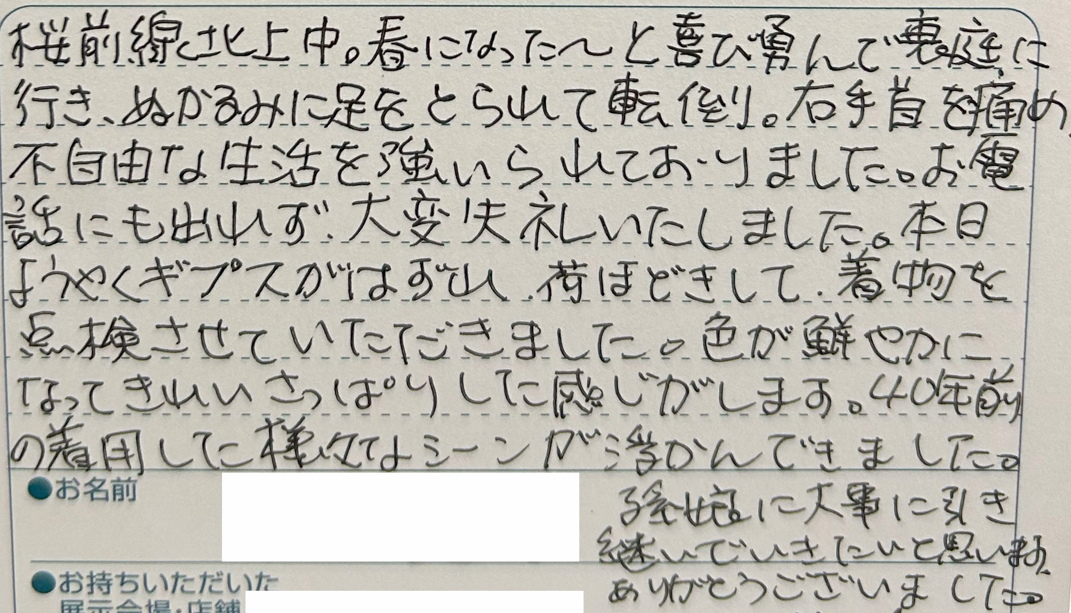 桜前線北上中。春になった〜と喜び勇んで裏庭に
行き、ぬかるみに足をとられて転倒。右手首を痛め
不自由な生活を強いられておりました。お電
話にも出れず、大変失礼いたしました。本日
ようやくギプスがはずれ、荷ほどきして、着物を
点検させていただきました。色が鮮やかに
なってきれいさっぱりした感じがします。40年前
の着用した様々なシーンが浮かんできました。
●お名前
孫娘に大事に引き
継いでいきたいと思います。
●お持ちいただいた
ありがとうございました。
展示会場・店舗